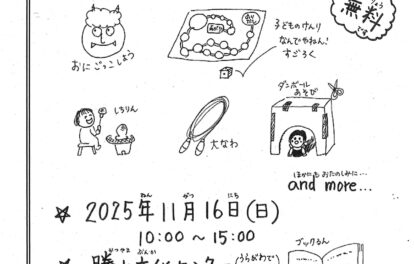 りょう
無料
です
おにごっこしよう
子どものけんり
なんでやねん!
すごろく
しちりん
大なわ
ダンボール
あそび
ほかにも おたのしみに…
and more...
ねん がつ にち
☆ 2025年11月16日(日)
10:00 〜 15:00
ブックるん